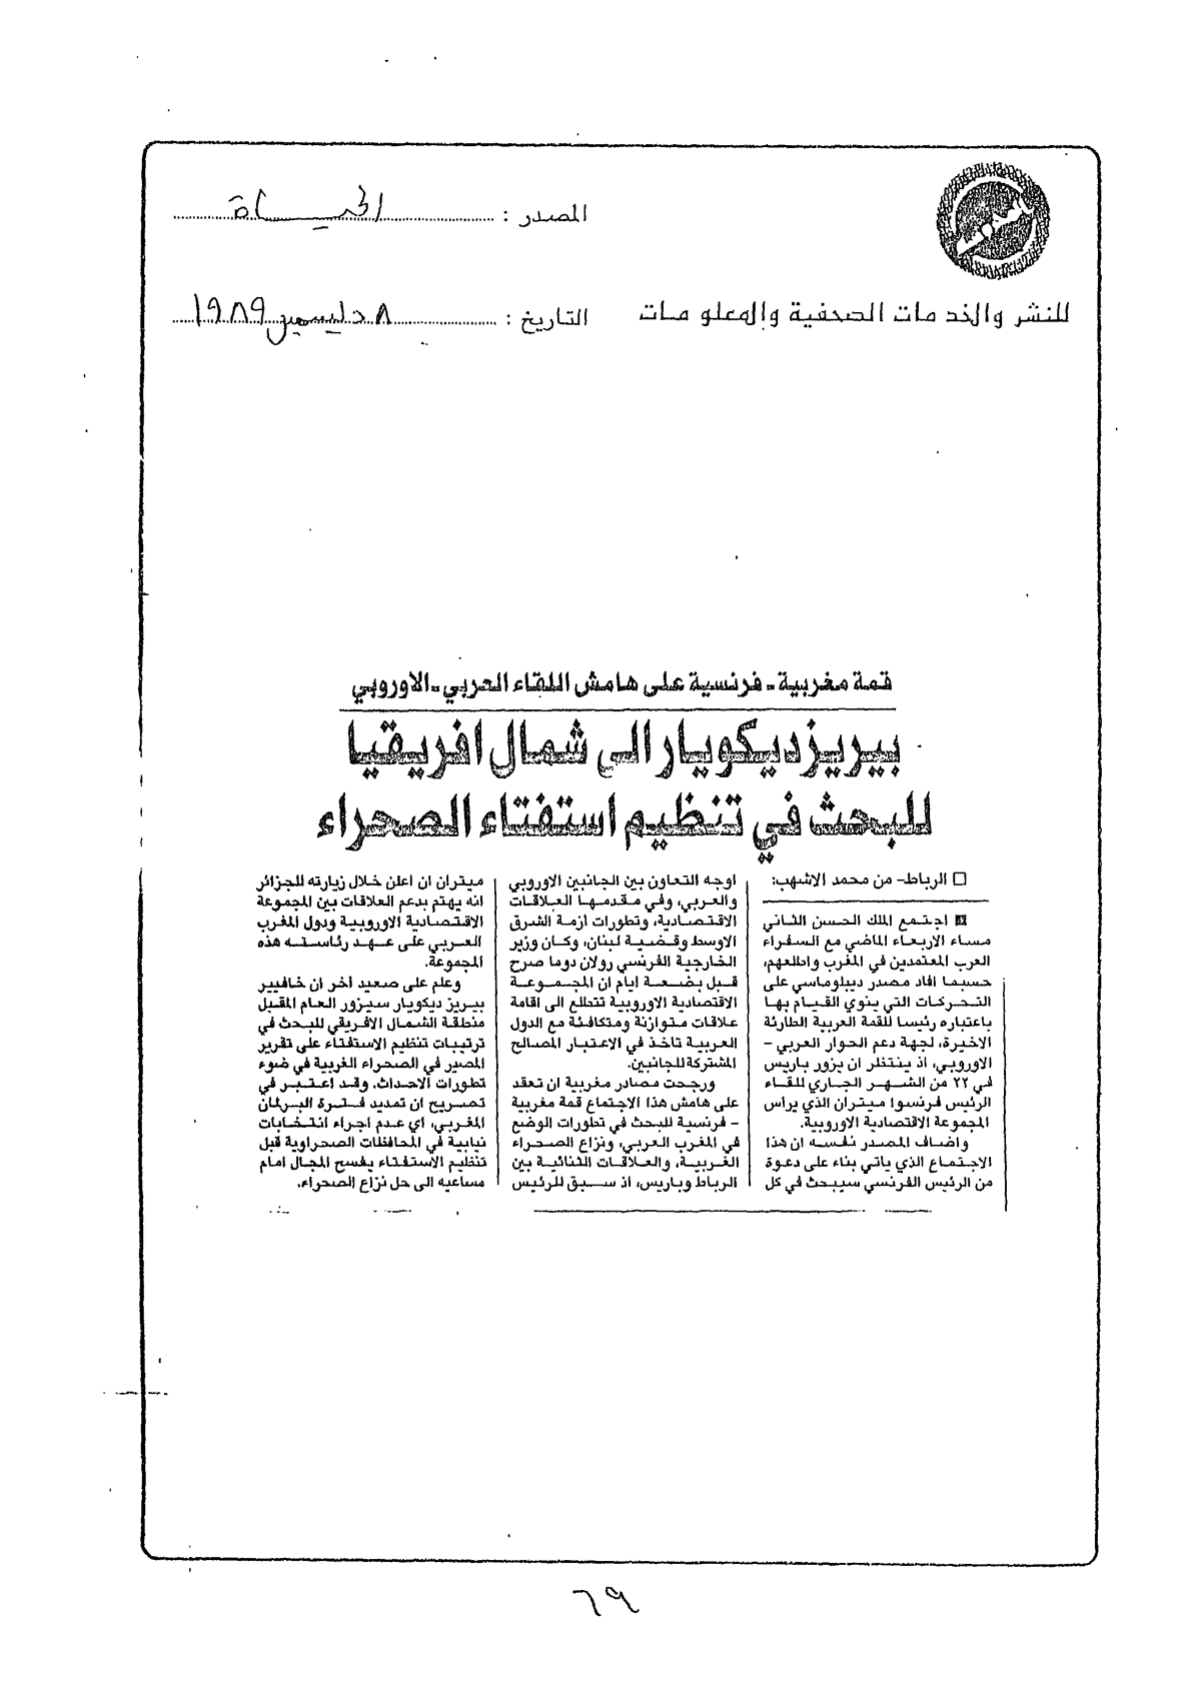 المصدر : الحياة
للنشر والخدمات الصحفية والمعلومات
التاريخ : ٨ ديسمبر ١٩٨٩
قمة مغربية - فرنسية على هامش اللقاء العربي - الاوروبي
بيريز ديكويار الى شمال افريقيا
للبحث في تنظيم استفتاء الصحراء
□ الرباط - من محمد الاشهب:
اجتمع الملك الحسن الثاني
مساء الاربعاء الماضي مع السفراء
العرب المعتمدين في المغرب واطلعهم،
حسبما افاد مصدر ديبلوماسي على
التحركات التي ينوي القيام بها
باعتباره رئيسا للقمة العربية الطارئة
الاخيرة، لجهة دعم الحوار العربي -
الاوروبي، اذ ينتظر ان يزور باريس
في ٢٢ من الشهر الجاري للقاء
الرئيس فرنسوا ميتران الذي يراس
المجموعة الاقتصادية الاوروبية.
واضاف المصدر نفسه ان هذا
الاجتماع الذي ياتي بناء على دعوة
من الرئيس الفرنسي سيبحث في كل
اوجه التعاون بين الجانبين الاوروبي
والعربي، وفي مقدمها العلاقات
الاقتصادية، وتطورات ازمة الشرق
الاوسط وقضية لبنان، وكان وزير
الخارجية الفرنسي رولان دوما صرح
قبل بضعة ايام ان المجموعة
الاقتصادية الاوروبية تتطلع الى اقامة
علاقات متوازنة ومتكافئة مع الدول
العربية تاخذ في الاعتبار المصالح
المشتركة للجانبين.
ورجحت مصادر مغربية ان تعقد
على هامش هذا الاجتماع قمة مغربية
- فرنسية للبحث في تطورات الوضع
في المغرب العربي، ونزاع الصحراء
الغربية، والعلاقات الثنائية بين
الرباط وباريس، اذ سبق للرئيس
ميتران ان اعلن خلال زيارته للجزائر
انه يهتم بدعم العلاقات بين المجموعة
الاقتصادية الاوروبية ودول المغرب
العربي على عهد رئاسته هذه
المجموعة.
وعلم على صعيد اخر ان خافيير
بيريز ديكويار سيزور العام المقبل
منطقة الشمال الافريقي للبحث في
ترتيبات تنظيم الاستفتاء على تقرير
المصير في الصحراء الغربية في ضوء
تطورات الاحداث. وقد اعتبر في
تصريح ان تمديد فترة البرلمان
المغربي، اي عدم اجراء انتخابات
نيابية في المحافظات الصحراوية قبل
تنظيم الاستفتاء يفسح المجال امام
مساعيه الى حل نزاع الصحراء.
٦٩